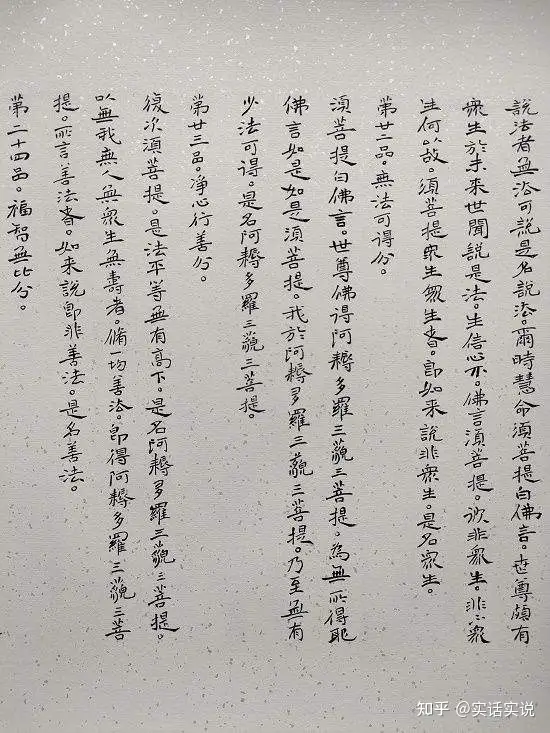 說法者無法可說是名說法。爾時慧命須菩提白佛言。世尊頗有
眾生於未來世聞說是法。生信心不。佛言須菩提。彼非眾生。非不眾
生何以故。須菩提眾生眾生者。即如来說非眾生。是名眾生。
第廿二品。無法可得分。
須菩提白佛言。世尊佛得阿耨多羅三藐三菩提。為無所得耶
佛言如是如是須菩提。我於阿耨多羅三藐三菩提。乃至無有
少法可得。是名阿耨多羅三藐三菩提。
第廿三品。净心行善分。
復次須菩提。是法平等無有高下。是名阿耨多羅三藐三菩提。
以無我無人無眾生無壽者。脩一切善法。即得阿耨多羅三藐三菩
提。所言善法者。如来說即非善法。是名善法。
第二十四品。福智無比分。
知乎 @实话实说